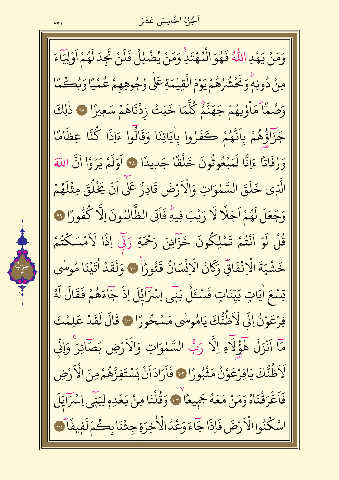 اَلْجُزْءُ الْخَامِسَ عَشَرَ
وَمَنْ يَهْدِ اللّٰهُ فَهُوَ الْمُهْتَدِ وَمَنْ يُضْلِلْ فَلَنْ تَجِدَ لَهُمْ اَوْلِيَٓاءَ
مِنْ دُونِهِ وَنَحْشُرُهُمْ يَوْمَ الْقِيٰمَةِ عَلٰى وُجُوهِهِمْ عُمْيًا وَبُكْمًا
وَصُمًّا مَأْوٰيهُمْ جَهَنَّمُ كُلَّمَا خَبَتْ زِدْنَاهُمْ سَعِيرًا ۝ ذٰلِكَ
جَزَٓاؤُ۬هُمْ بِاَنَّهُمْ كَفَرُوا بِاٰيَاتِنَا وَقَالُٓوا ءَاِذَا كُنَّا عِظَامًا
وَرُفَاتًا ءَاِنَّا لَمَبْعُوثُونَ خَلْقًا جَدِيدًا ۝ اَوَلَمْ يَرَوْا اَنَّ اللّٰهَ
الَّذِى خَلَقَ السَّمٰوَاتِ وَالْاَرْضَ قَادِرٌ عَلٰٓى اَنْ يَخْلُقَ مِثْلَهُمْ
وَجَعَلَ لَهُمْ اَجَلًا لَا رَيْبَ فِيهِ فَاَبَى الظَّالِمُونَ اِلَّا كُفُورًا ۝
قُلْ لَوْ اَنْتُمْ تَمْلِكُونَ خَزَٓائِنَ رَحْمَةِ رَبِّٓى اِذًا لَاَمْسَكْتُمْ
خَشْيَةَ الْاِنْفَاقِ وَكَانَ الْاِنْسَانُ قَتُورًا ۝ وَلَقَدْ اٰتَيْنَا مُوسٰى
تِسْعَ اٰيَاتٍ بَيِّنَاتٍ فَسْـَٔلْ بَنِٓى اِسْرَٓائِلَ اِذْ جَٓاءَهُمْ فَقَالَ لَهُ
فِرْعَوْنُ اِنِّى لَاَظُنُّكَ يَامُوسٰى مَسْحُورًا ۝ قَالَ لَقَدْ عَلِمْتَ
مَٓا اَنْزَلَ هٰٓؤُ۬لَٓاءِ اِلَّا رَبُّ السَّمٰوَاتِ وَالْاَرْضِ بَصَٓائِرَ وَاِنِّى
لَاَظُنُّكَ يَافِرْعَوْنُ مَثْبُورًا ۝ فَاَرَادَ اَنْ يَسْتَفِزَّهُمْ مِنَ الْاَرْضِ
فَاَغْرَقْنَاهُ وَمَنْ مَعَهُ جَمِيعًا ۝ وَقُلْنَا مِنْ بَعْدِهِ لِبَنِٓى اِسْرَٓائِلَ
اسْكُنُوا الْاَرْضَ فَاِذَا جَٓاءَ وَعْدُ الْاٰخِرَةِ جِئْنَا بِكُمْ لَفِيفًا ۝